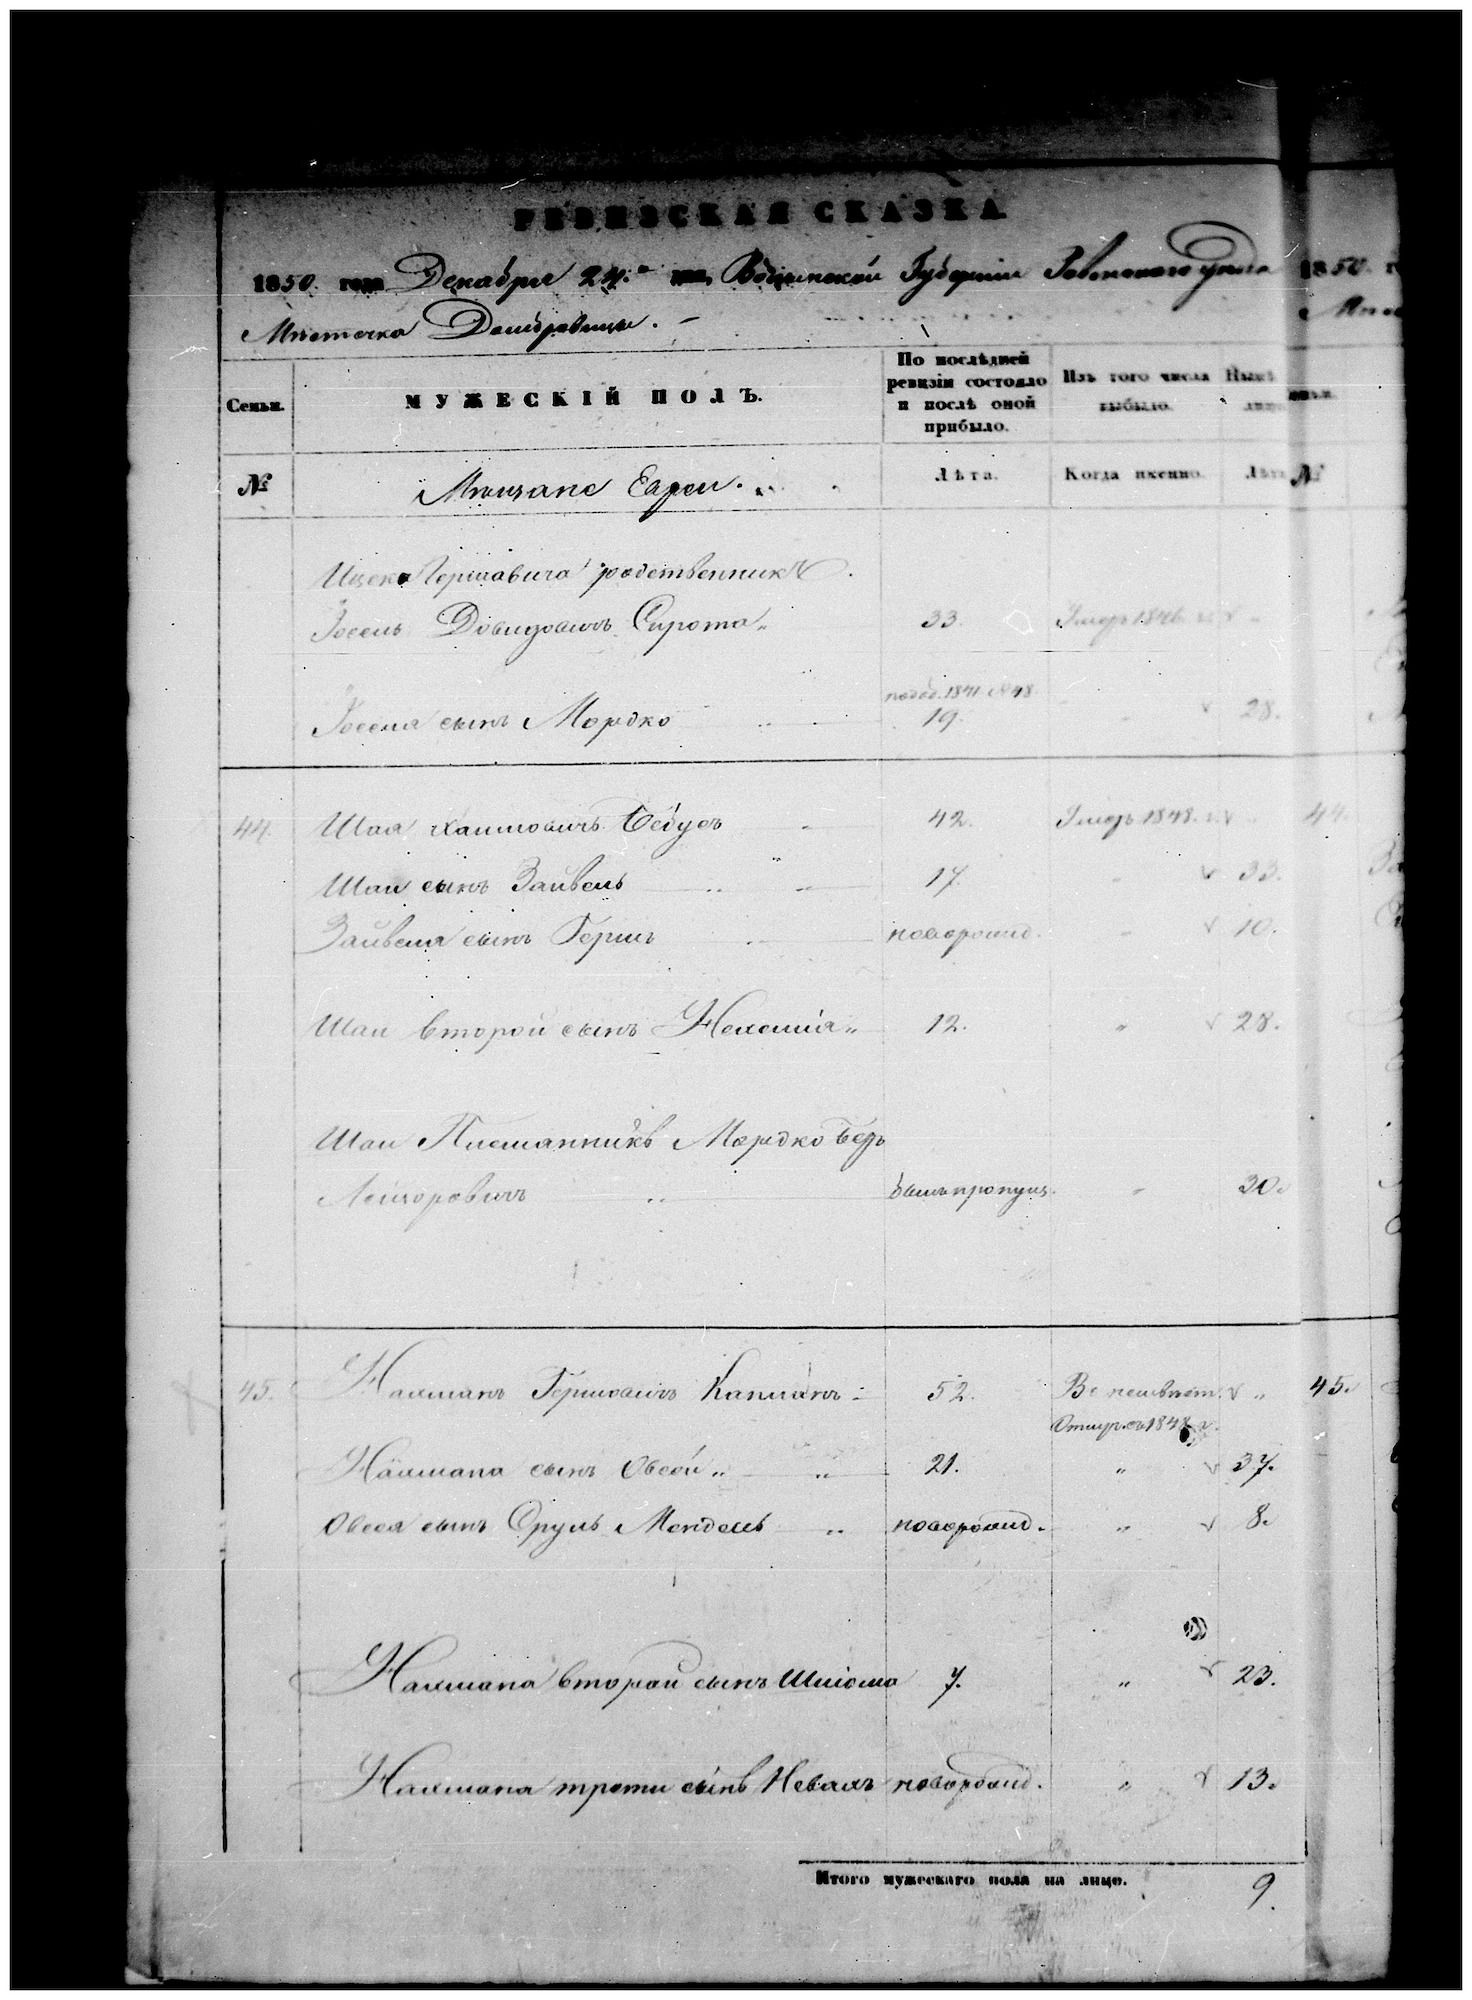 РЕВИЗСКАЯ СКАЗКА.
1850 года Декабря 24.го дня, Волынской Губернии Ровенского уезда
Местечка Домбровицы. —
Семьи.
МУЖЕСКІЙ ПОЛЪ.
По послѣдней ревизіи состояло и послѣ оной прибыло.
Изъ того числа выбыло.
Нынѣ
№
Мещане Евреи.
Лѣта.
Когда именно.
Лѣта
Ицека Гершовича родственникъ
Иосель Довидовичъ Сирота „ 33. Умеръ 1846 г. v „
1841 № 48
Иоселя сынъ Мордко 19. v 28.
44. Шая Хаимовичъ Бебусъ 42. Умеръ 1848. г. v „
Шаи сынъ Зайвель 17. „ v 33.
Зайвеля сынъ Гершъ новорожд. „ v 10.
Шаи второй сынъ Нехемія „ 12. „ v 28.
Шаи Племянникъ Мордко Беръ
Лейзоровичъ „ былъ пропущ. „ 30.
45. Нахманъ Гершовичъ Капланъ 52. v „
1848 г.
Нахмана сынъ Овсей „ 21. „ v 37.
Овсея сынъ Сруль Мендель „ новорожд. „ v 8.
Нахмана второй сынъ Шліома 7. „ v 23.
Нахмана трети сынъ Невахъ новорожд. „ v 13.
Итого мужескаго пола на лицо. 9.
1850 г
44.
45.
№